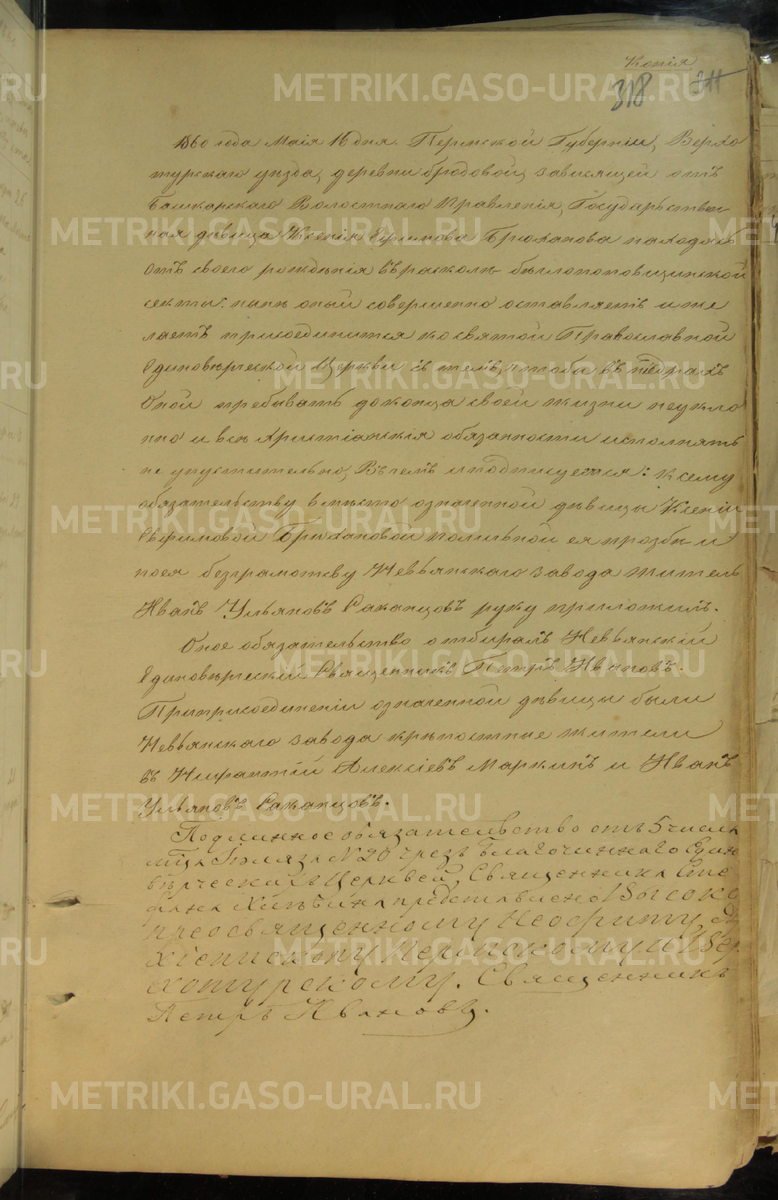 Копія
318
1860 года Маія 16 дня. Пермской Губерніи, Верхо
турскаго уезда, деревни бродовой, зависящей отъ
Башкарскаго Волостнаго Правленія, Государьствен
ная девица Ксенія Ефимова Брюханова находясь
отъ своего рожденія въ расколе былопоповщинской
секты: ныне оный совершенно оставляетъ и же
лаетъ присоединится ко святой Православной
Единоверческой Церкви съ темъ, чтобы въ недрахъ
Оной пребывать до конца своей жизни неукло
нно и все христіанскія обязанности исполнять
не упустительно, Въ чемъ и подписуется: К сему
обязательству вместо означенной девицы Ксеніи
Ефимовой Брюхановой по личной ея прозбе и
по ея безграмотству Невьянскаго завода житель
Иванъ Ульяновъ Саканцовъ руку приложилъ.
Оное обязательство отбиралъ Невьянскій
Единоверческій Священникъ Петръ Ивановъ.
При присоединеніи означенной девицы были
Невьянскаго завода крепостные жители
Нифантій Алексіевъ Маркинъ и Иванъ
Ульяновъ Саканцовъ.
Подлинное обязательство отъ 5 числа
м͠ца Іюля за № 20 чрезъ Благочиннаго Един
верческихъ Церквей, Священника Сте
фана представлено Высоко
преосвященному Неофиту, Ар
хіепископу Пермскому и Вер
хотурскому. Священникъ
Петръ Ивановъ.
METRIKI.GASO-URAL.RU